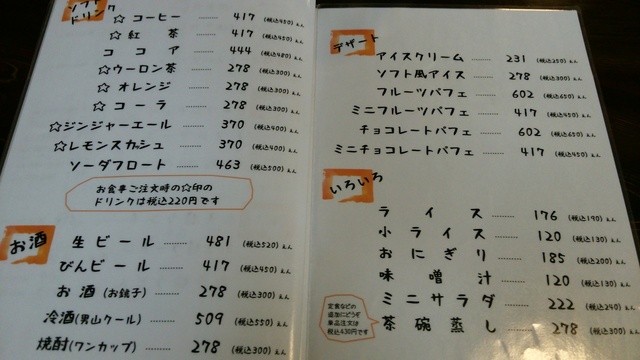 ソフト
ドリンク
☆コーヒー 417 (税込450)えん
☆紅茶 417 (税込450)えん
ココア 444 (税込480)えん
☆ウーロン茶 278 (税込300)えん
☆オレンジ 278 (税込300)えん
☆コーラ 278 (税込300)えん
☆ジンジャーエール 370 (税込400)えん
☆レモンスカシュ 370 (税込400)えん
ソーダフロート 463 (税込500)えん
お食事ご注文時の☆印の
ドリンクは税込220円です
お酒
生ビール 481 (税込520)えん
びんビール 417 (税込450)えん
お酒(お銚子) 278 (税込300)えん
冷酒(男山クール) 509 (税込550)えん
焼酎(ワンカップ) 278 (税込300)えん
デザート
アイスクリーム 231 (税込250)えん
ソフト風アイス 278 (税込300)えん
フルーツパフェ 602 (税込650)えん
ミニフルーツパフェ 417 (税込450)えん
チョコレートパフェ 602 (税込650)えん
ミニチョコレートパフェ 417 (税込450)えん
いろいろ
ライス 176 (税込190)えん
小ライス 120 (税込130)えん
おにぎり 185 (税込200)えん
味噌汁 120 (税込130)えん
ミニサラダ 222 (税込240)えん
茶碗蒸し 278 (税込300)えん
定食などの
追加にどうぞ
単品注文は
税込430円です